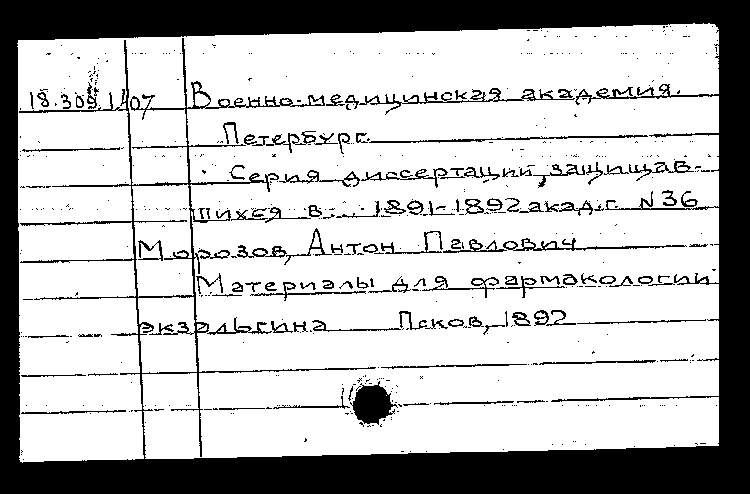 18.309.1/107 Военно-медицинская академия.
Петербург.
Серия диссертаций, защищав-
шихся в... 1891-1892 акад.г. N 36
Морозов, Антон Павлович
Материалы для фармакологии
экзальгина Псков, 1892